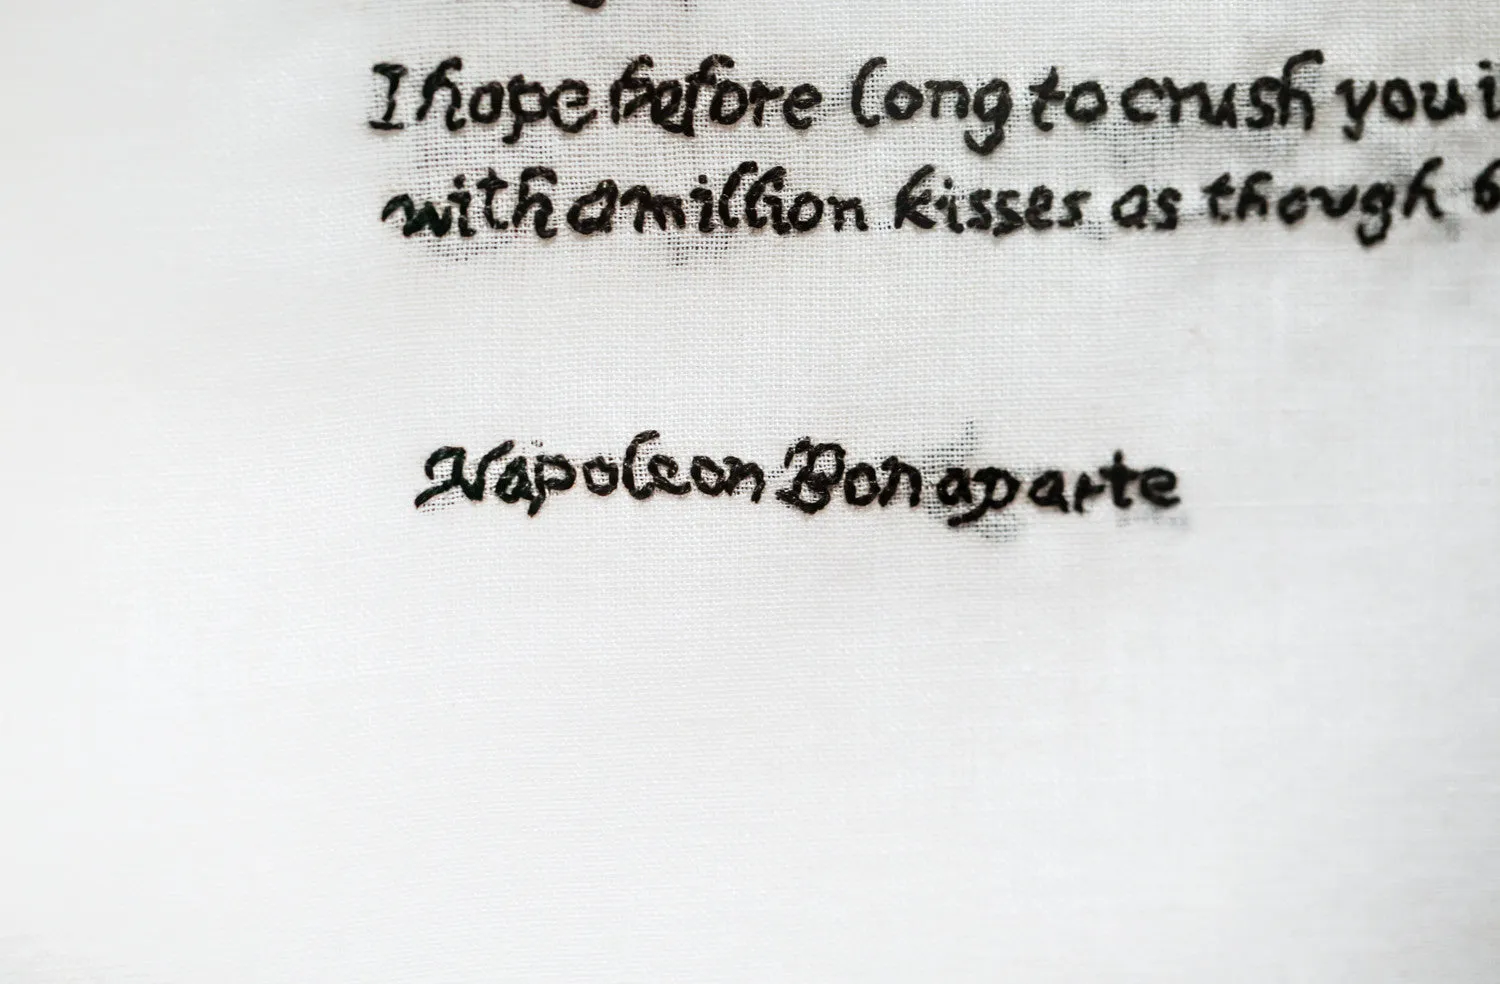 I hope before long to crush you i
with a million kisses as though b
Napoleon Bonaparte